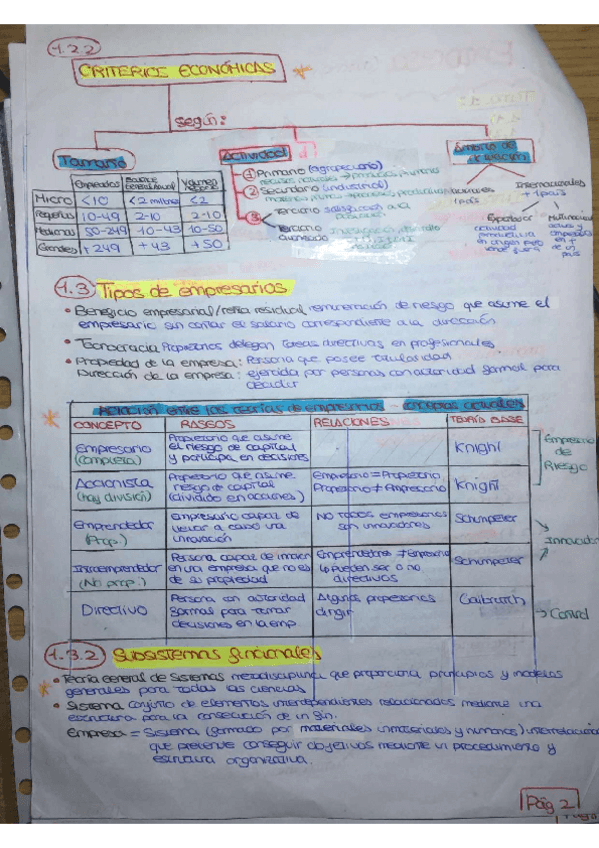 1.2.2
CRITERIOS ECONÓMICAS
según:
Tamaño
Empleados
Micro <10 <2 millones <2
Pequeñas 10-49 2-10 2-10
Medianas 50-249 10-43 10-50
Grandes +249 +43 +50
Actividad
① Primario (agropecuario)
recursos naturales → productos primarios
② Secundario (industrial)
③ Terciario
Terciario
avanzado
Ámbito de
actuación
Nacionales
1 país
Internacionales
+ 1 país
Exportador
actividad
productiva
en origen pero
vende fuera
Multinacional
1.3 Tipos de empresarios
• Beneficio empresarial/renta residual remuneración de riesgo que asume el
empresario sin contar el salario correspondiente a la dirección
• Tecnocracia Propietarios delegan tareas directivas en profesionales
• Propiedad de la empresa: Persona que posee titularidad
Dirección de la empresa: ejercida por personas con autoridad formal para
decidir
Relación entre las teorías de empresarios - conceptos actuales
CONCEPTO RASGOS RELACIONES TEORÍA BASE
Empresario
(completa)
Propietario que asume
el riesgo de capital
y participa en decisiones
Knight
Accionista
(hay división)
Propietario que asume
riesgo de capital
(dividido en acciones)
Empresario = Propietario
Propietario ≠ Empresario
Knight
Empresario
de
Riesgo
Emprendedor
(Prop.)
Empresario capaz de
llevar a cabo una
innovación
No todos empresarios
son innovadores
Schumpeter
Intraemprendedor
(No prop.)
Persona capaz de innovar
en una empresa que no es
de su propiedad
Emprendedores ≠ Empresario
↳ pueden ser o no
directivos
Schumpeter
Innovador
Directivo
Persona con autoridad
formas para tomar
decisiones en la emp.
Algunos propietarios
dirigir
Galbraith
→ Control
1.3.2 Subsistemas funcionales
• Teoría General de Sistemas metadisciplina que proporciona principios y modelos
generales para todas las ciencias
• Sistema conjunto de elementos interdependientes relacionados mediante una
estructura para la consecución de un fin.
Empresa = Sistema (formado por materiales inmateriales y humanos) interrelacionados
que pretende conseguir objetivos mediante un procedimiento y
estructura organizativa.
Pág 2